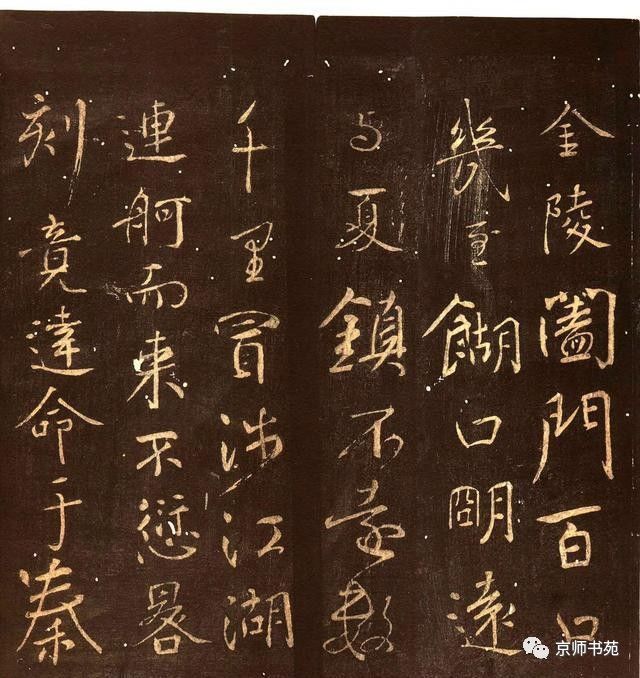 金陵闔門百口
幾至餬口明遠
与夏鎮不遠數
千里冒涉江湖
連舸而來不愆晷
刻竟達命于秦
京师书苑